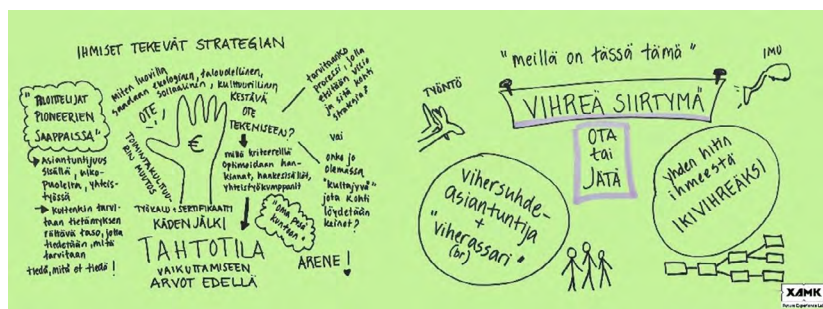 IHMISET TEKEVÄT STRATEGIAN
"PILOTTELIJAT
PIONEERIEN
SAAPPAISSA"
Asiantuntijuus
sisällä, ulko-
puolelta, yhteis-
työssä
Kuitenkin tarvi-
taan tietämyksen
riittävä taso, jotta
tiedetään, mitä
tarvitaan
tiedä, mitä et tiedä!
Miten luovilla
saadaan ekologinen, taloudellinen,
sosiaalinen, kulttuurillinen
KESTÄVÄ
OTE
TEKEMISEEN?
OTE,
TOIMINTAKULTTUU-
RIN MUUTOS
€
millä kriteereillä
optimoidaan han-
kinnat, hankesisällöt,
yhteistyökumppanit
TYÖKALU + SERTIFIKAATTI
KÄDENJÄLKI
TAHTOTILA
VAIKUTTAMISEEN
ARVOT EDELLÄ
"Oma pesä
kuntoon"
ARENE!
tarvitaanko
prosessi, jolla
etsitään visio
ja sitä kohti
strategia?
vai
onko jo
olemassa
"kultajyvä"
jota kohti
löydetään
keinot?
"meillä on tässä tämä"
TYÖNTÖ
IMU
VIHREÄ SIIRTYMÄ
OTA
tai
JÄTÄ
vihersuhde-
asiantuntija
+
"viherassari"
(br)
yhden hitin
ihmeestä
IKIVIHREÄKSI
XAMK
Future Experience Lab